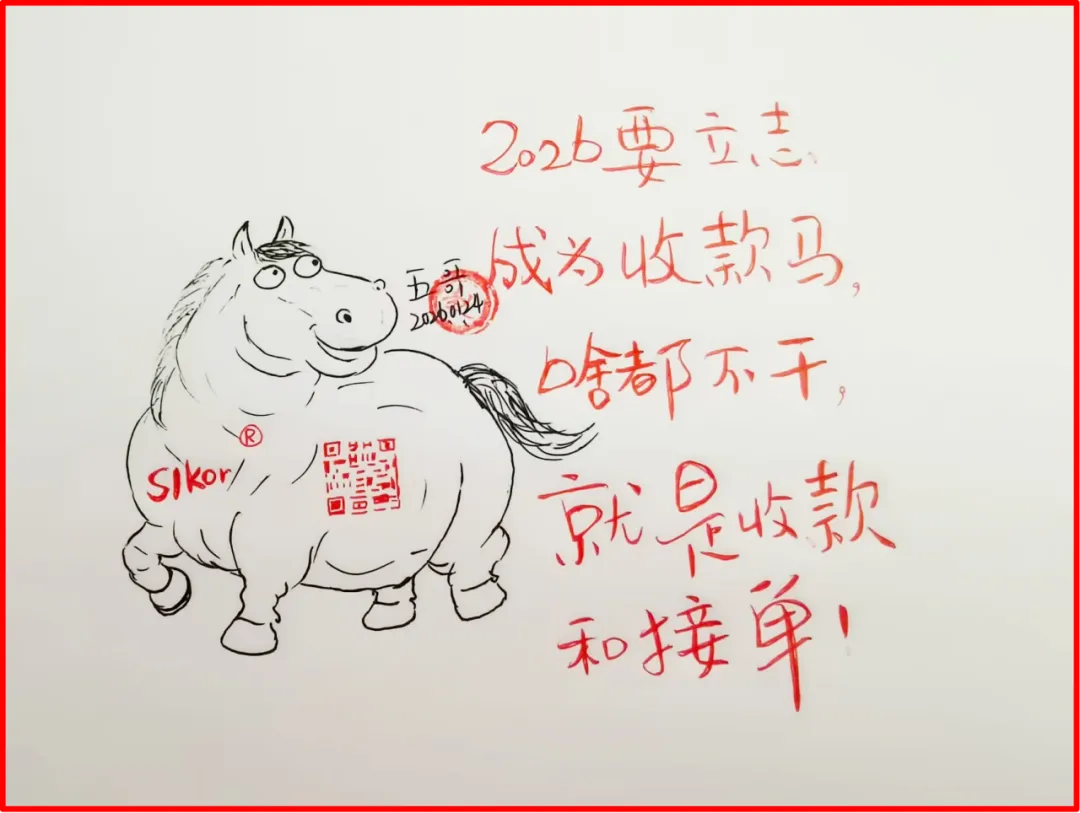 2026要立志
成为收款马,
啥都不干,
就是收款
和接单!
五哥
20260124
Slkor
®